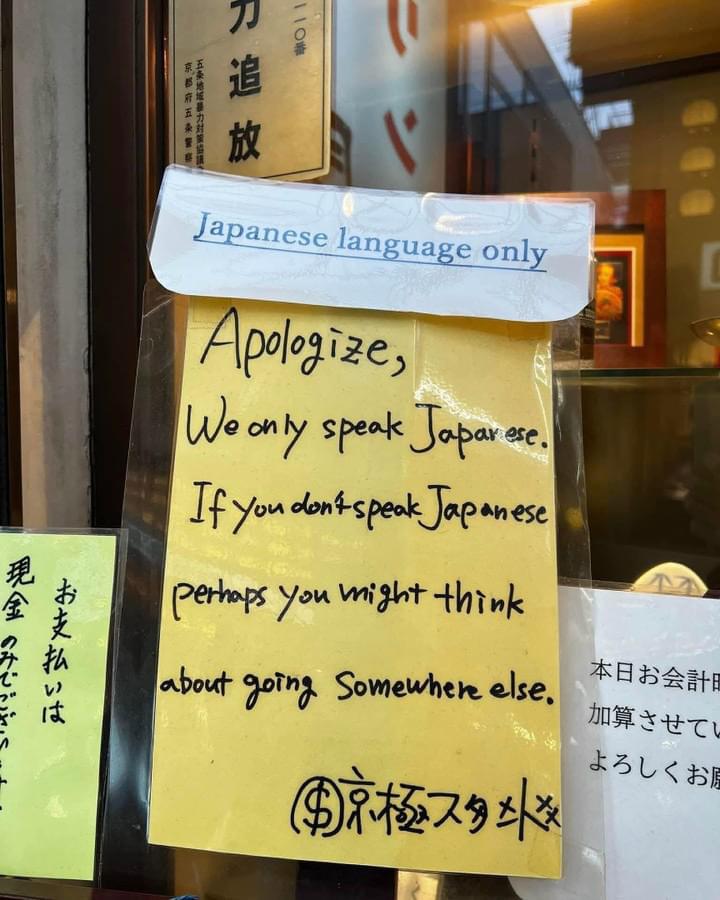 一一〇番
力追放
五条地域暴力対策協議
京都府五条警察
リン
Japanese language only
Apologize,
We only speak Japanese.
If you don't speak Japanese
perhaps you might think
about going somewhere else.
京極スタンド
お支払いは
現金のみでございます!
本日お会計時
加算させてい
よろしくお願